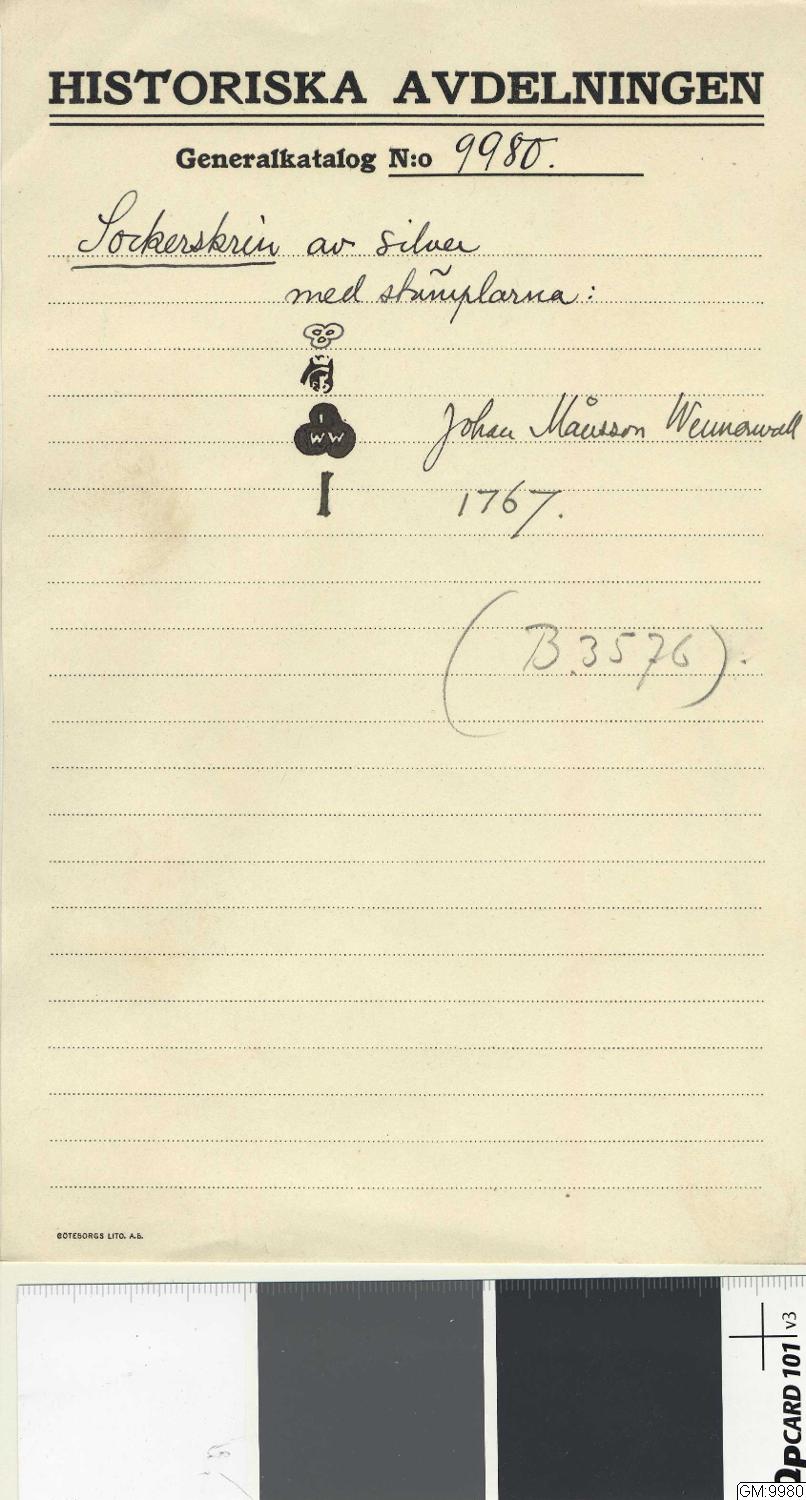 HISTORISKA AVDELNINGEN
Generalkatalog N:o 9980.
Sockerskrin av silver
med stämplarna:
I
WW
Johan Månsson Wennerwall
I
1767.
(B.3576).
GÖTEBORGS LITO. A.B.
QPCARD 101 v3
GM:9980